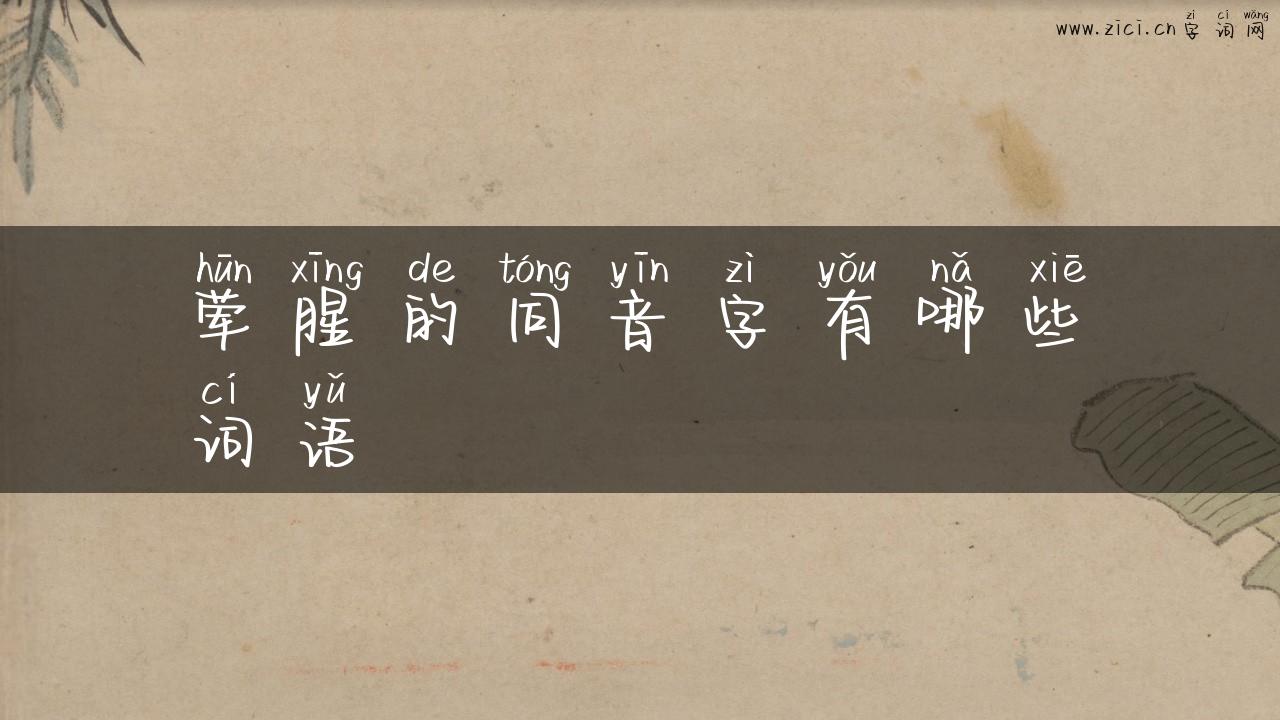 zì cí wǎng
www.zici.cn 字词网
hūn xīng de tóng yīn zì yǒu nǎ xiē
荤腥的同音字有哪些
cí yǔ
词语